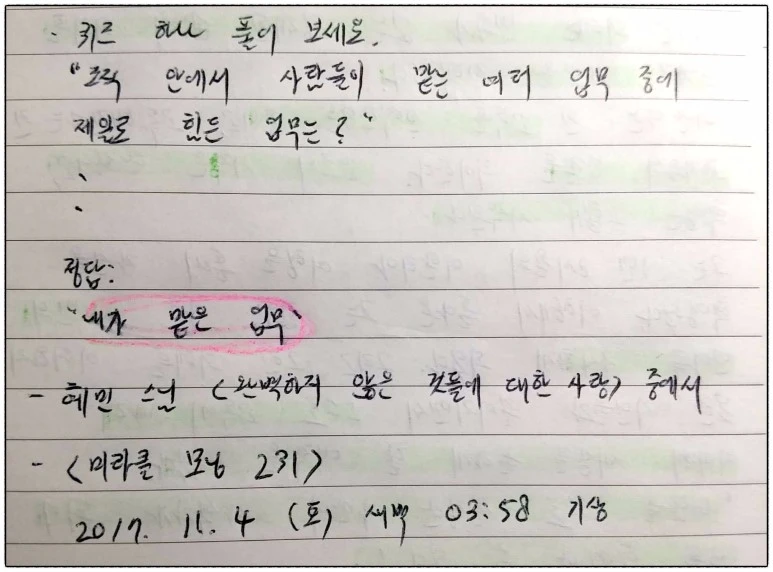 - 퀴즈 하나 풀어 보세요.
"조직 안에서 사람들이 맡는 여러 업무 중에
제일로 힘든 업무는?"
.
.
정답:
"내가 맡은 업무"
- 혜민 스님 <완벽하지 않은 것들에 대한 사랑> 중에서
- <미라클 모닝 231>
2017. 11. 4 (토) 새벽 03:58 기상